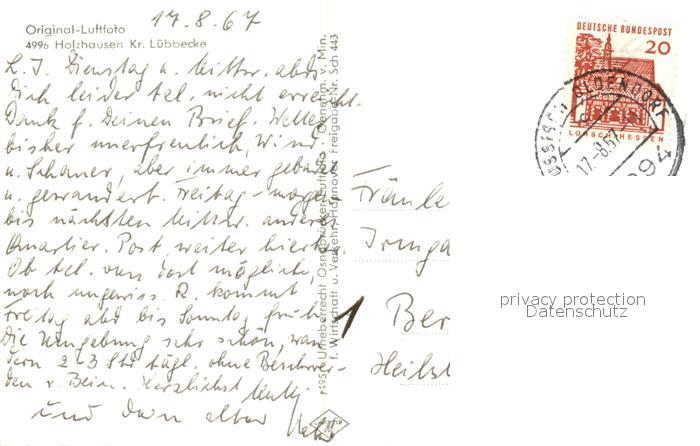 17.8.67
Original-Luftfoto
4996 Holzhausen Kr. Lübbecke
L. I. Dienstag u. Mittw. abds
Dich leider tel. nicht erreicht.
Dank f. Deinen Brief. Wetter
bisher unerfreulich, Wind
u. Schauer, aber immer gebadet
u. gewandert. Freitag - morgen
bis nächsten Mittw. anderes
Quartier. Post weiter hierher.
Ob tel. von dort möglich,
noch ungewiss. R. kommt
Freitag abd bis Sonntag früh.
Die Umgebung sehr schön, wan-
dern 2-3 Std tägl. ohne Beschwer-
den v. Bein. Herzlichst
und dann alber
Urheberrecht Osnabrücker Luftfoto · Genehm. v. Min.
f. Wirtschaft u. Verkehr Hannover Freigabe Nr. Sch 443
DEUTSCHE BUNDESPOST
20
LORSCH/HESSEN
OLDENDORF
17.-8.67
Fräule
Irmga
1 Ber
Heilst
privacy protection
Datenschutz